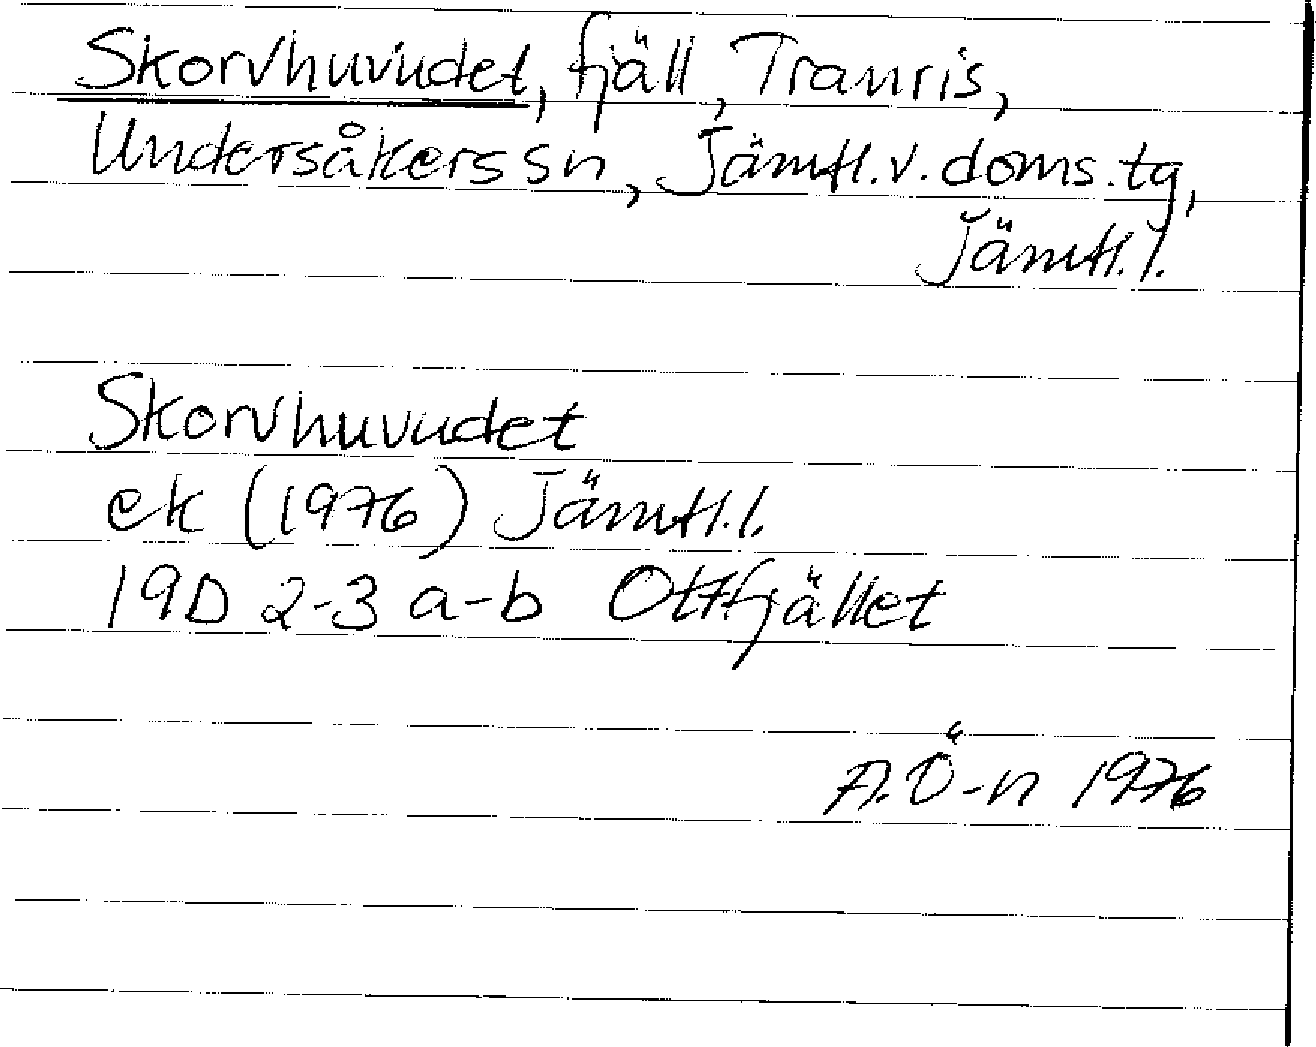 Skorvhuvudet, fjäll, Tranris,
Undersåkers sn, Jämtl.v.doms.tg,
Jämtl.l.
Skorvhuvudet
ek (1976) Jämtl.l.
19D 2-3 a-b Ottfjället
A.Ö-n 1976